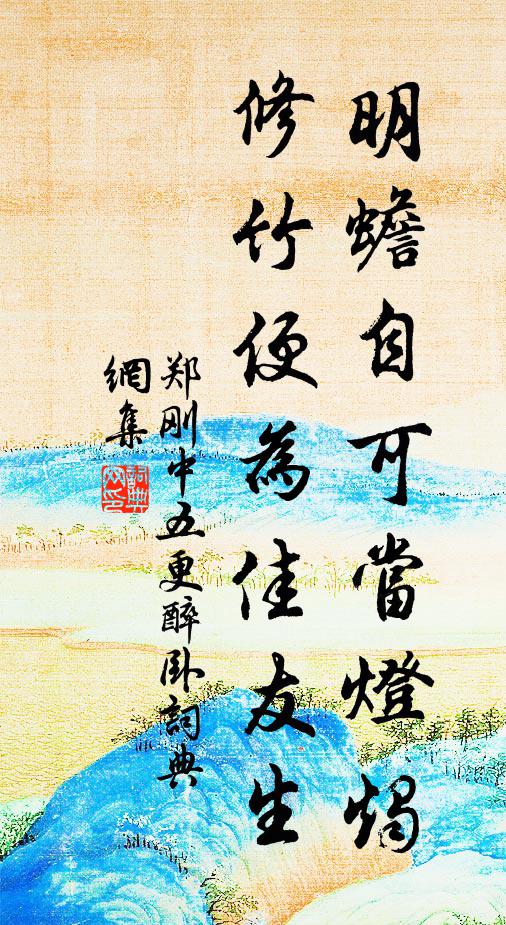 明蟾自可當燈燭
修竹便為佳友生
郑刚中五更醉卧詞典
網集